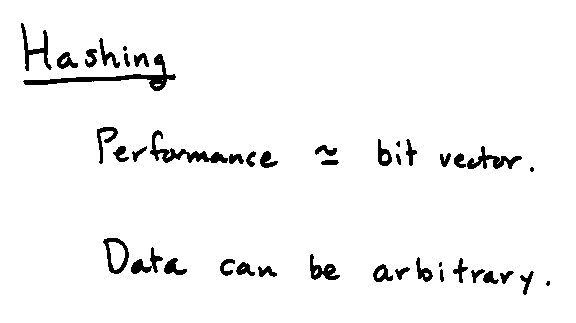 Hashing
Performance ≃ bit vector.
Data can be arbitrary.